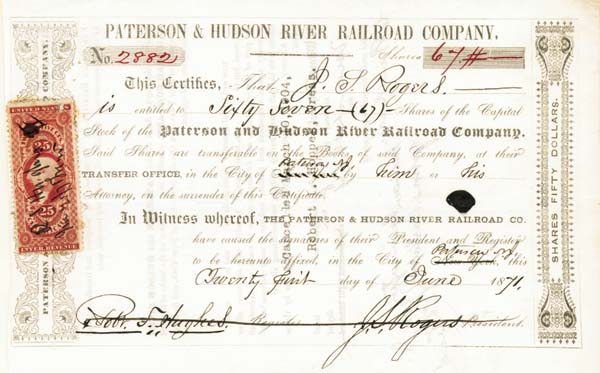 PATERSON & HUDSON RIVER RAILROAD COMPANY,
No. 2882 Shares 67
This Certifies, That J. S. Rogers.
is entitled to Sixty Seven (67) Shares of the Capital
Stock of the Paterson and Hudson River Railroad Company.
Said Shares are transferable on the Books of said Company, at their
Paterson NJ
TRANSFER OFFICE, in the City of by him or his
Attorney, on the surrender of this Certificate.
In Witness whereof, THE PATERSON & HUDSON RIVER RAILROAD CO.
have caused the signatures of their President and Register
Paterson NJ.
to be hereunto affixed, in the City of New York, this
Twenty first day of June 1871.
Robt. S. Hughes Register J. S. Rogers President.
SHARES FIFTY DOLLARS.
25 25
INTER. REVENUE
PATERSON
COMPANY.